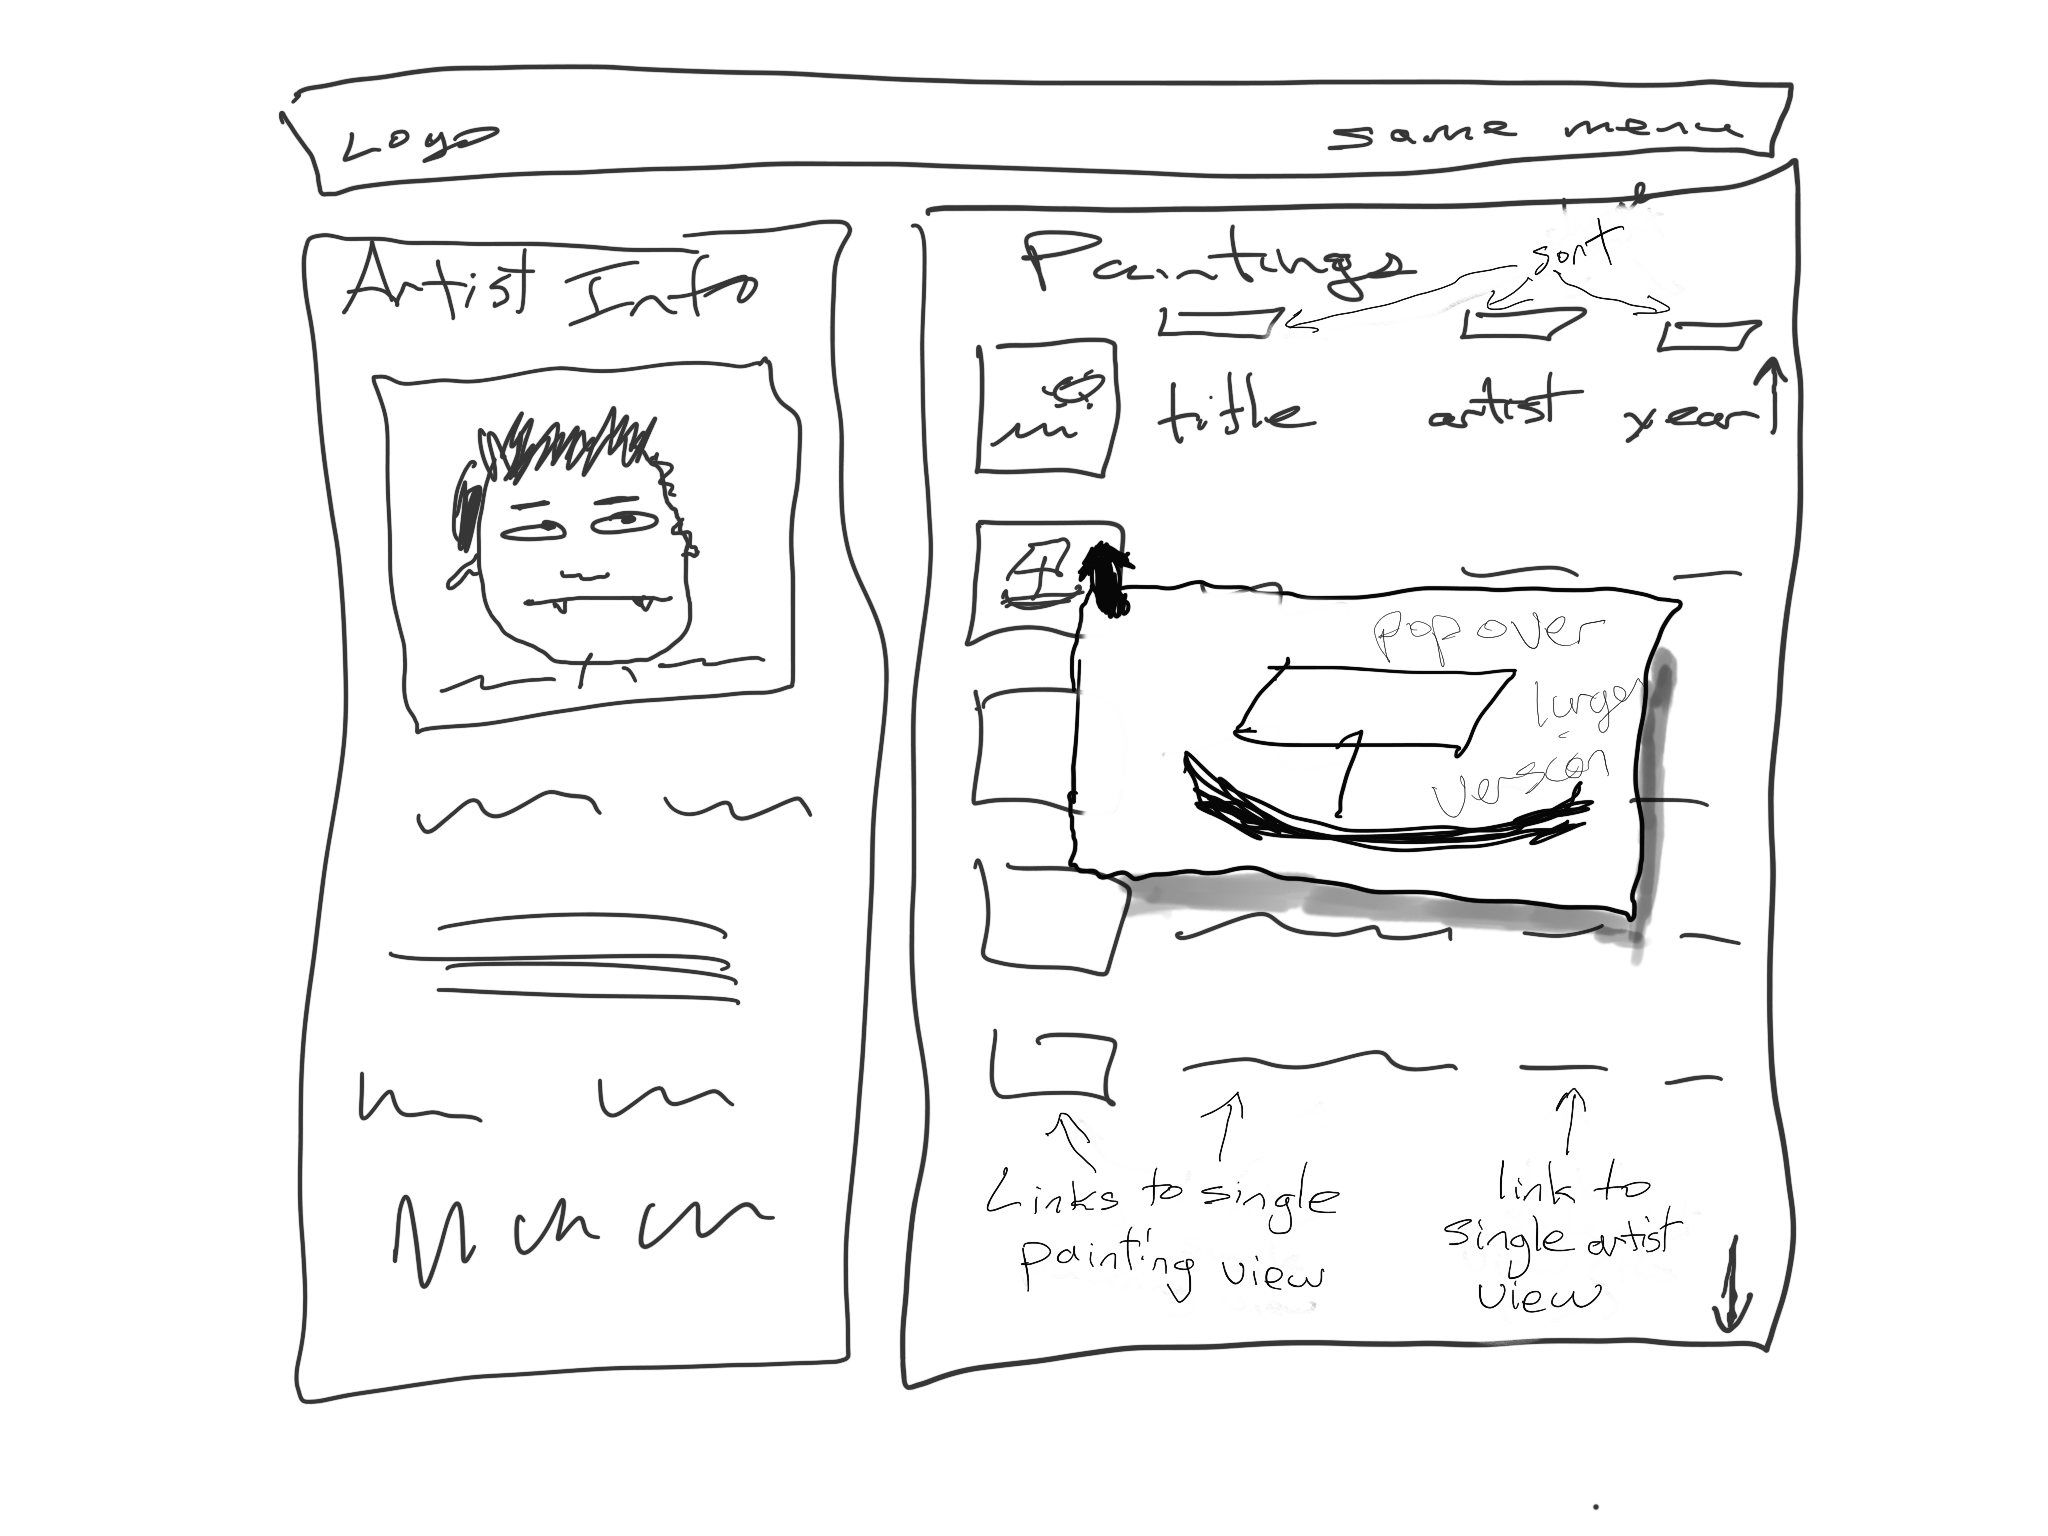 Logo
same menu
Artist Info
Paintings
sort
title
artist
year
pop over
larger
version
Links to single
painting view
link to
single artist
view